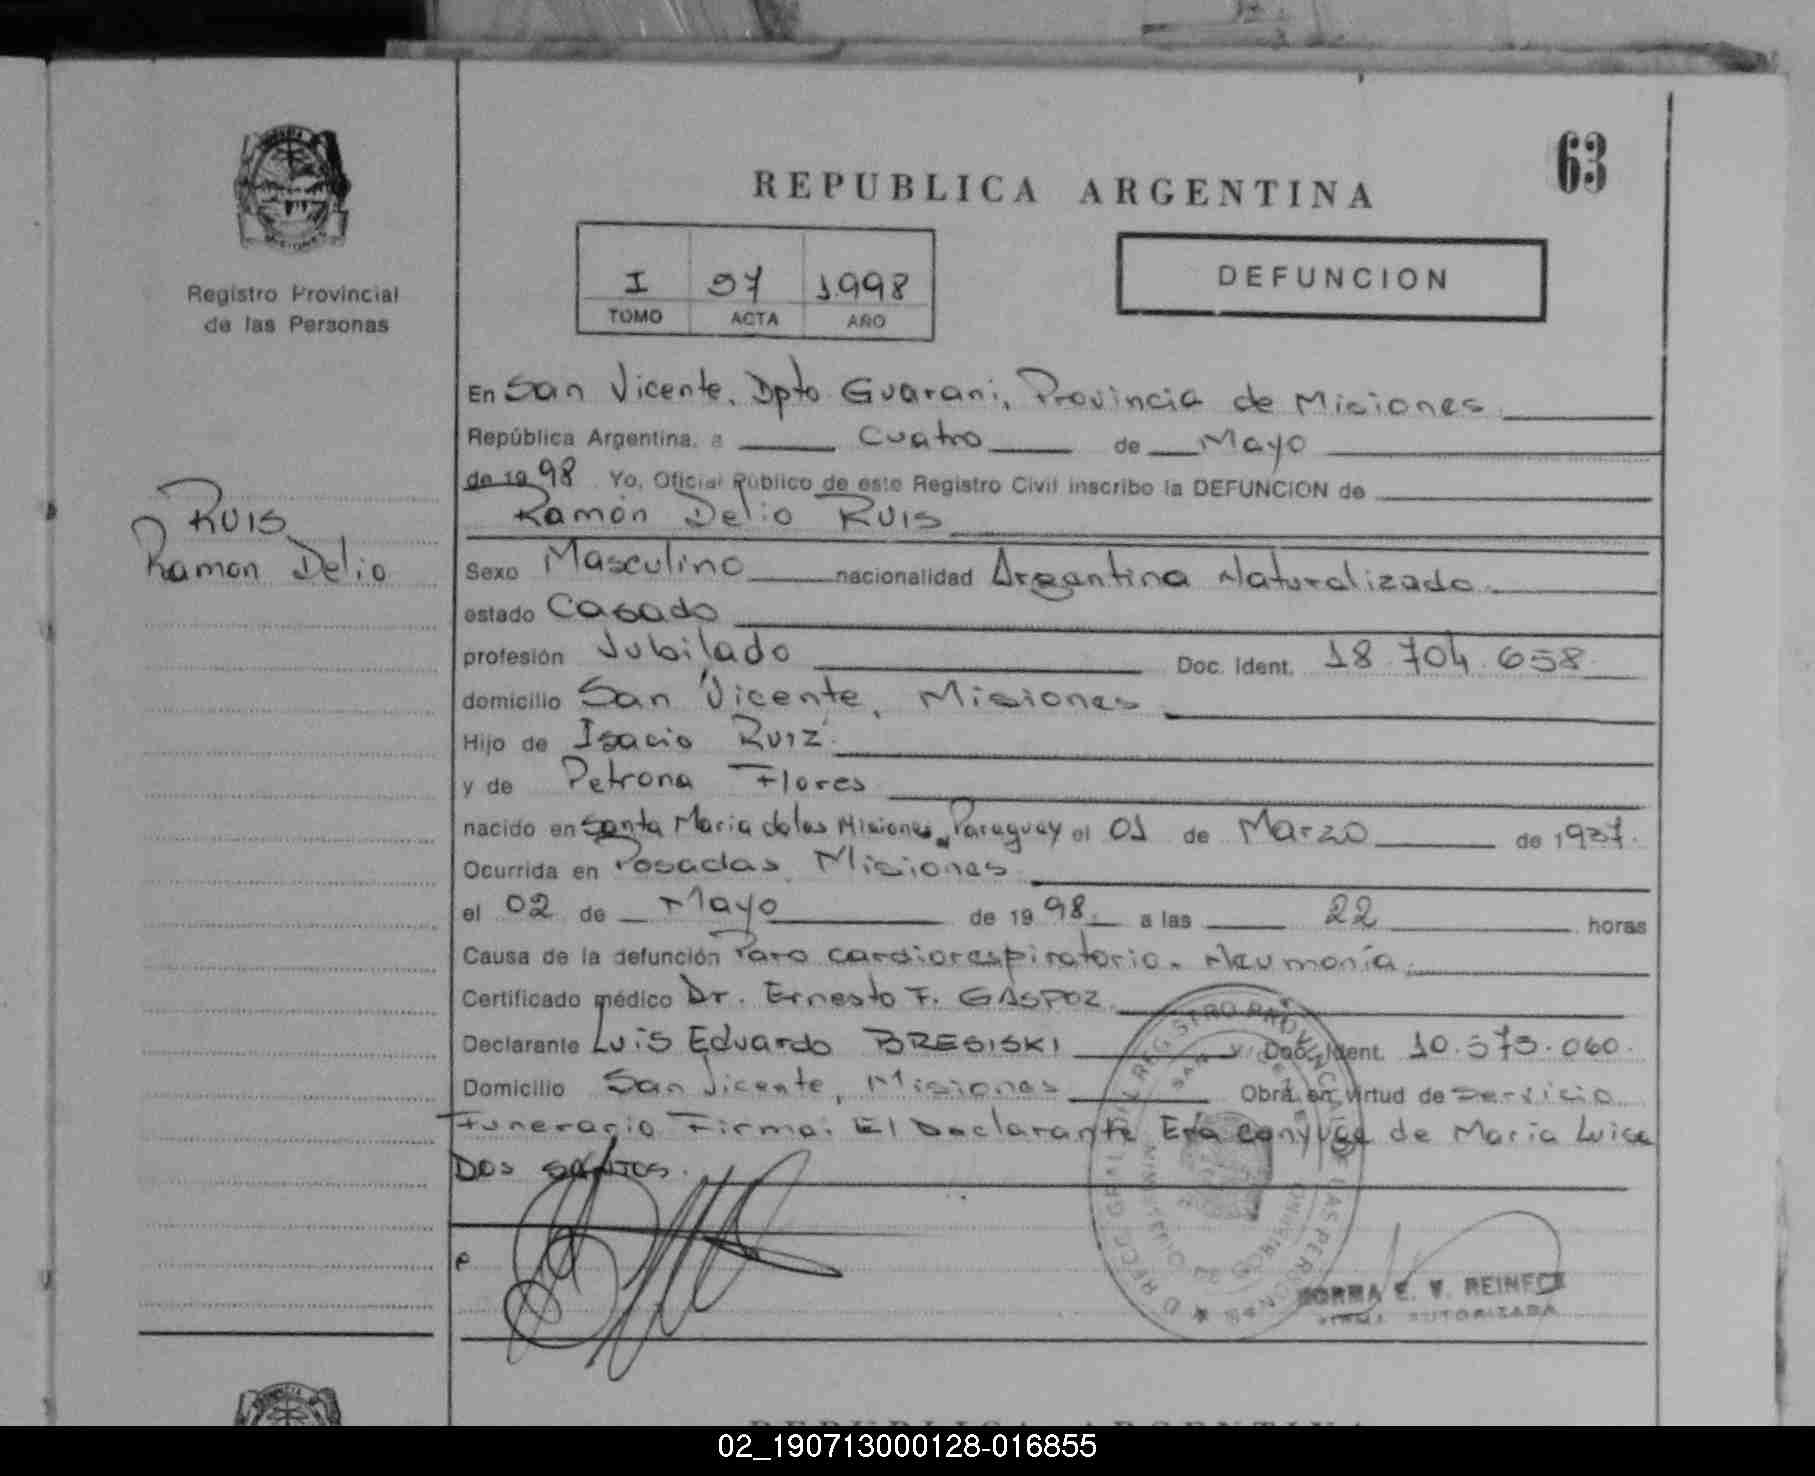 63
REPUBLICA ARGENTINA
Registro Provincial
de las Personas
I 97 1.998
TOMO ACTA AÑO
DEFUNCION
En San Vicente, Dpto Guarani, Provincia de Misiones
República Argentina, a Cuatro de Mayo
de 19 98 Yo, Oficial Público de este Registro Civil inscribo la DEFUNCION de
Ramón Delio RUIS
RUIS
Ramon Delio
Sexo Masculino nacionalidad Argentina Naturalizado
estado Casado
profesión Jubilado Doc. Ident. 18.704.658
domicilio San Vicente, Misiones
Hijo de Isacio RUIZ
y de Petrona Flores
nacido en Santa Maria de las Misiones, Paraguay el 01 de Marzo de 1937.
Ocurrida en Posadas, Misiones
el 02 de Mayo de 19 98. a las 22 horas
Causa de la defunción Paro cardiorespiratorio. Neumonía
Certificado médico Dr. Ernesto F. GASPOZ
Declarante Luis Eduardo BRESISKI Doc. Ident. 10.573.060.
Domicilio San Vicente, Misiones Obra en virtud de Servicio
Funerario Firma: El Declarante Era conyuge de Maria Luisa
DOS SANTOS.
NORMA E. V. REINECK
FIRMA AUTORIZADA
REPUBLICA ARGENTINA
02_190713000128-016855